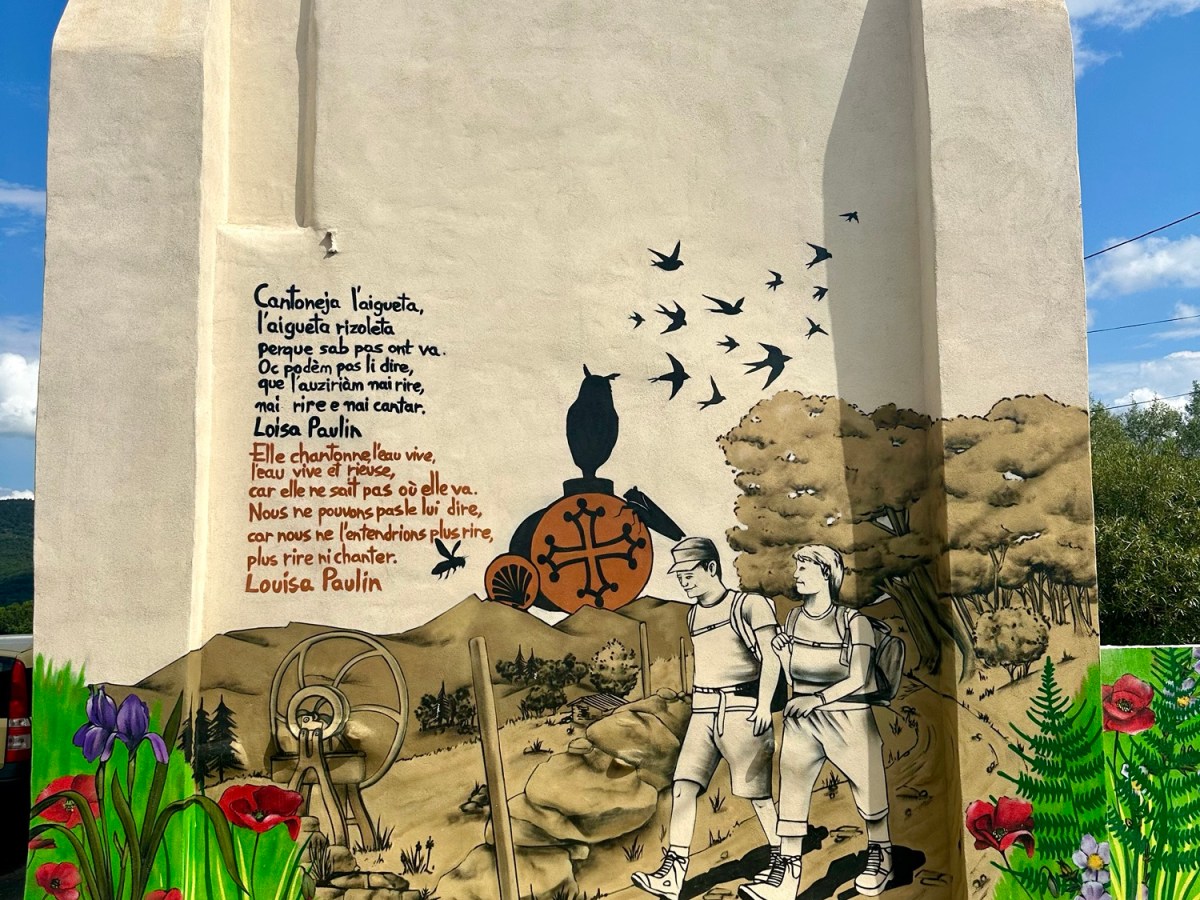 Cantoneja l'aigueta,
l'aigueta rizoleta
perque sab pas ont va.
Oc podèm pas li dire,
que l'auziriàm mai rire,
mai rire e mai cantar.
Loisa Paulin
Elle chantonne, l'eau vive,
l'eau vive et rieuse,
car elle ne sait pas où elle va.
Nous ne pouvons pas le lui dire,
car nous ne l'entendrions plus rire,
plus rire ni chanter.
Louisa Paulin